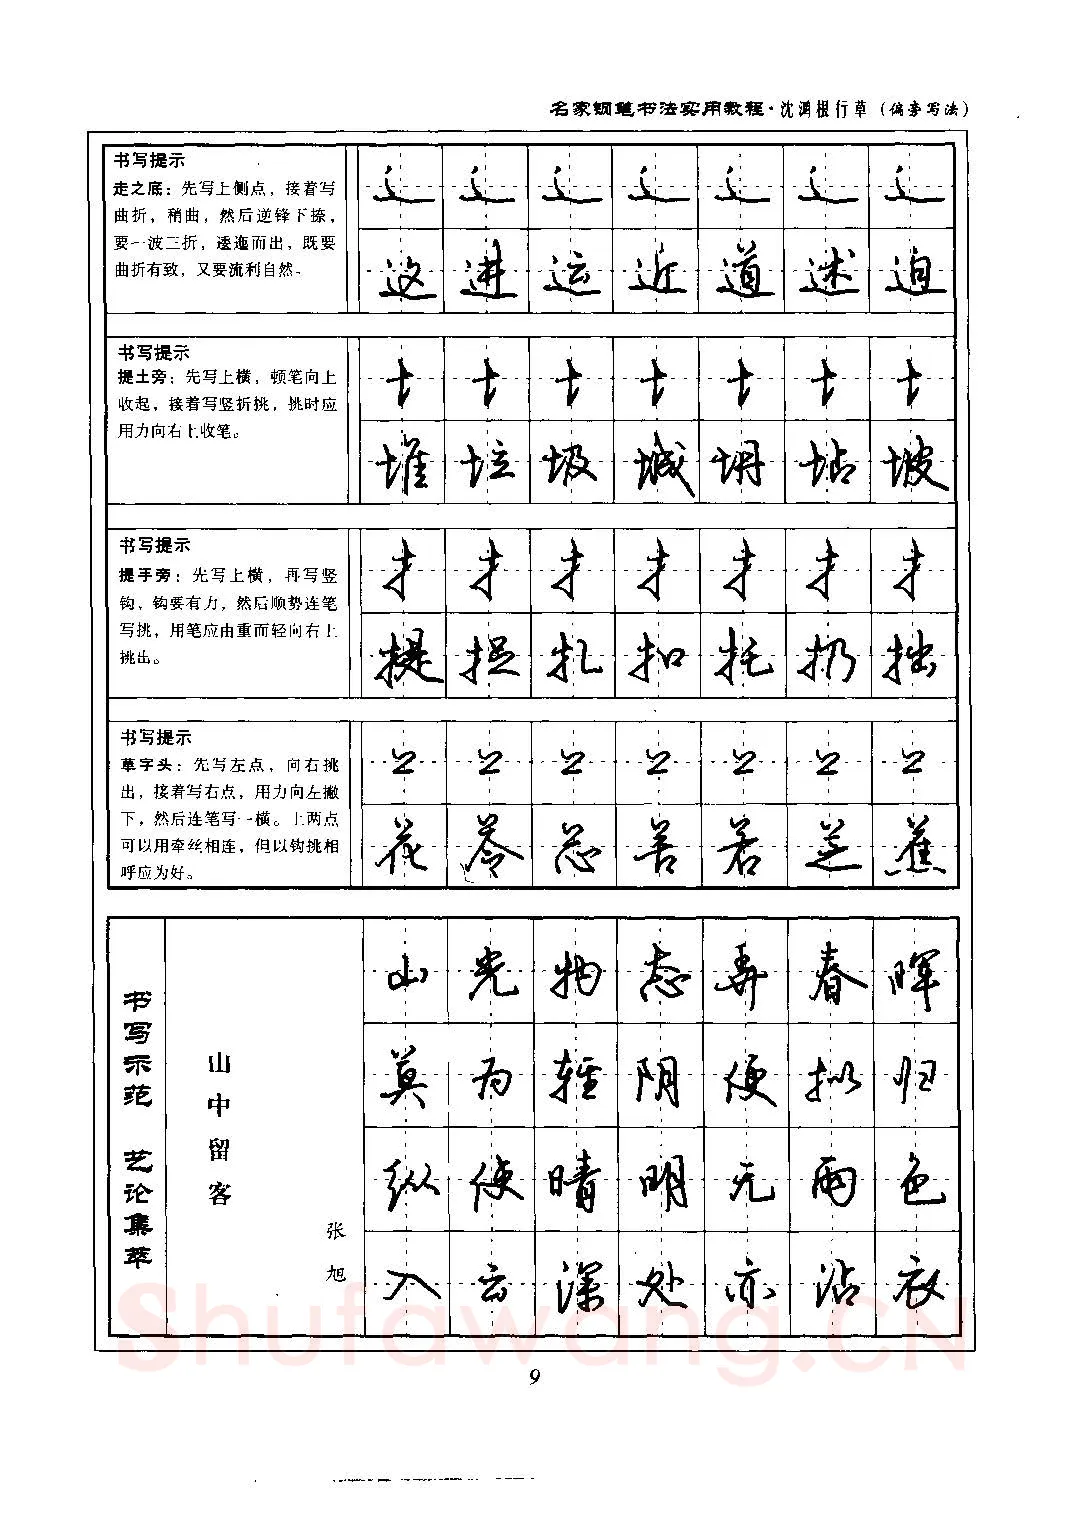 名家钢笔书法实用教程·沈鸿根行草(偏旁写法)
书写提示
走之底：先写上侧点，接着写
曲折，稍曲，然后逆锋下捺，
要一波三折，逶迤而出，既要
曲折有致，又要流利自然。
辶 辶 辶 辶 辶 辶 辶
这 进 运 近 道 述 迫
书写提示
提土旁：先写上横，顿笔向上
收起，接着写竖折挑，挑时应
用力向右上收笔。
土 土 土 土 土 土 土
堆 垃 圾 城 坍 坫 坡
书写提示
提手旁：先写上横，再写竖
钩，钩要有力，然后顺势连笔
写挑，用笔应由重而轻向右上
挑出。
扌 扌 扌 扌 扌 扌 扌
提 捉 扎 扣 托 扔 拙
书写提示
草字头：先写左点，向右挑
出，接着写右点，用力向左撇
下，然后连笔写一横。上两点
可以用牵丝相连，但以钩挑相
呼应为好。
艹 艹 艹 艹 艹 艹 艹
花 苓 芯 苦 若 芝 蕉
书写示范 艺论集萃
山中留客
张旭
山光物态弄春晖
莫为轻阴便拟归
纵使晴明无雨色
入云深处亦沾衣
Shufawang.CN
9